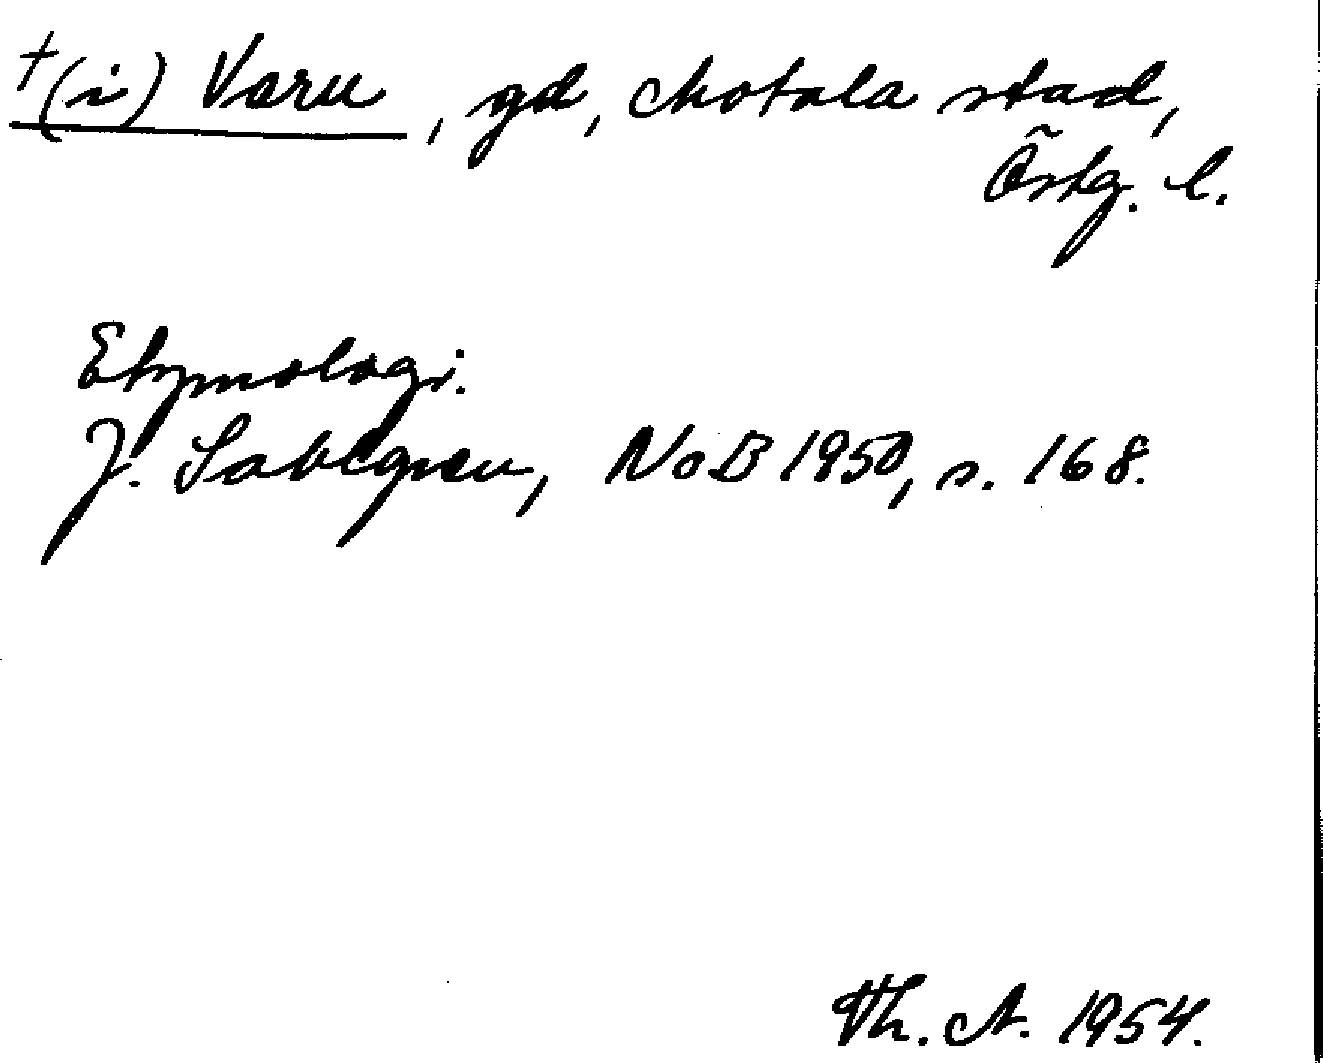 †(i) Varu, gd, Motala stad,
Östg. l.
Etymologi.
J. Sahlgren, NoB 1950, s. 168.
Th. A. 1954.